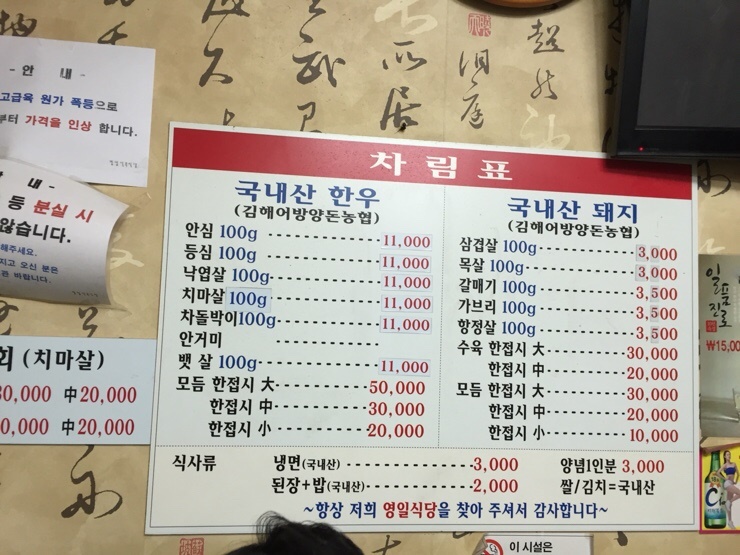 - 안 내 -
고급육 원가 폭등으로
부터 가격을 인상 합니다.
내 -
등 분실 시
않습니다.
해주세요.
지고 오신 분은
관 바랍니다.
회 (치마살)
30,000 中 20,000
0,000 中 20,000
차림표
국내산 한우
(김해어방양돈농협)
안심 100g 11,000
등심 100g 11,000
낙엽살 100g 11,000
치마살 100g 11,000
차돌박이100g 11,000
안거미
뱃 살 100g 11,000
모듬 한접시 大 50,000
한접시 中 30,000
한접시 小 20,000
국내산 돼지
(김해어방양돈농협)
삼겹살 100g 3,000
목살 100g 3,000
갈매기 100g 3,500
가브리 100g 3,500
항정살 100g 3,500
수육 한접시 大 30,000
한접시 中 20,000
모듬 한접시 大 30,000
한접시 中 20,000
한접시 小 10,000
식사류 냉면(국내산) 3,000 양념1인분 3,000
된장+밥(국내산) 2,000 쌀/김치=국내산
~항상 저희 영일식당을 찾아 주셔서 감사합니다~
일품
진로
₩15,00
이 시설은